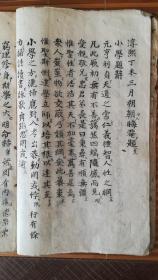 淳熙丁未三月朔朝晦菴題
小學題辭
元亨利貞天道之常仁義禮智人性之綱
凡此厥初無有不善藹然四端隨感而見
愛親敬兄忠君弟長是曰秉彝有順無彊
惟聖性者浩浩其天不加毫末萬善足焉
衆人蚩蚩物欲交蔽乃頹其綱安此暴棄
惟聖斯惻建學立師以培其根以達其支
小學之方灑掃應對入孝出恭動罔或悖行有餘
力誦詩讀書詠歌舞蹈思罔或逾
窮理修身斯學之大明命赫然罔有內外德崇業